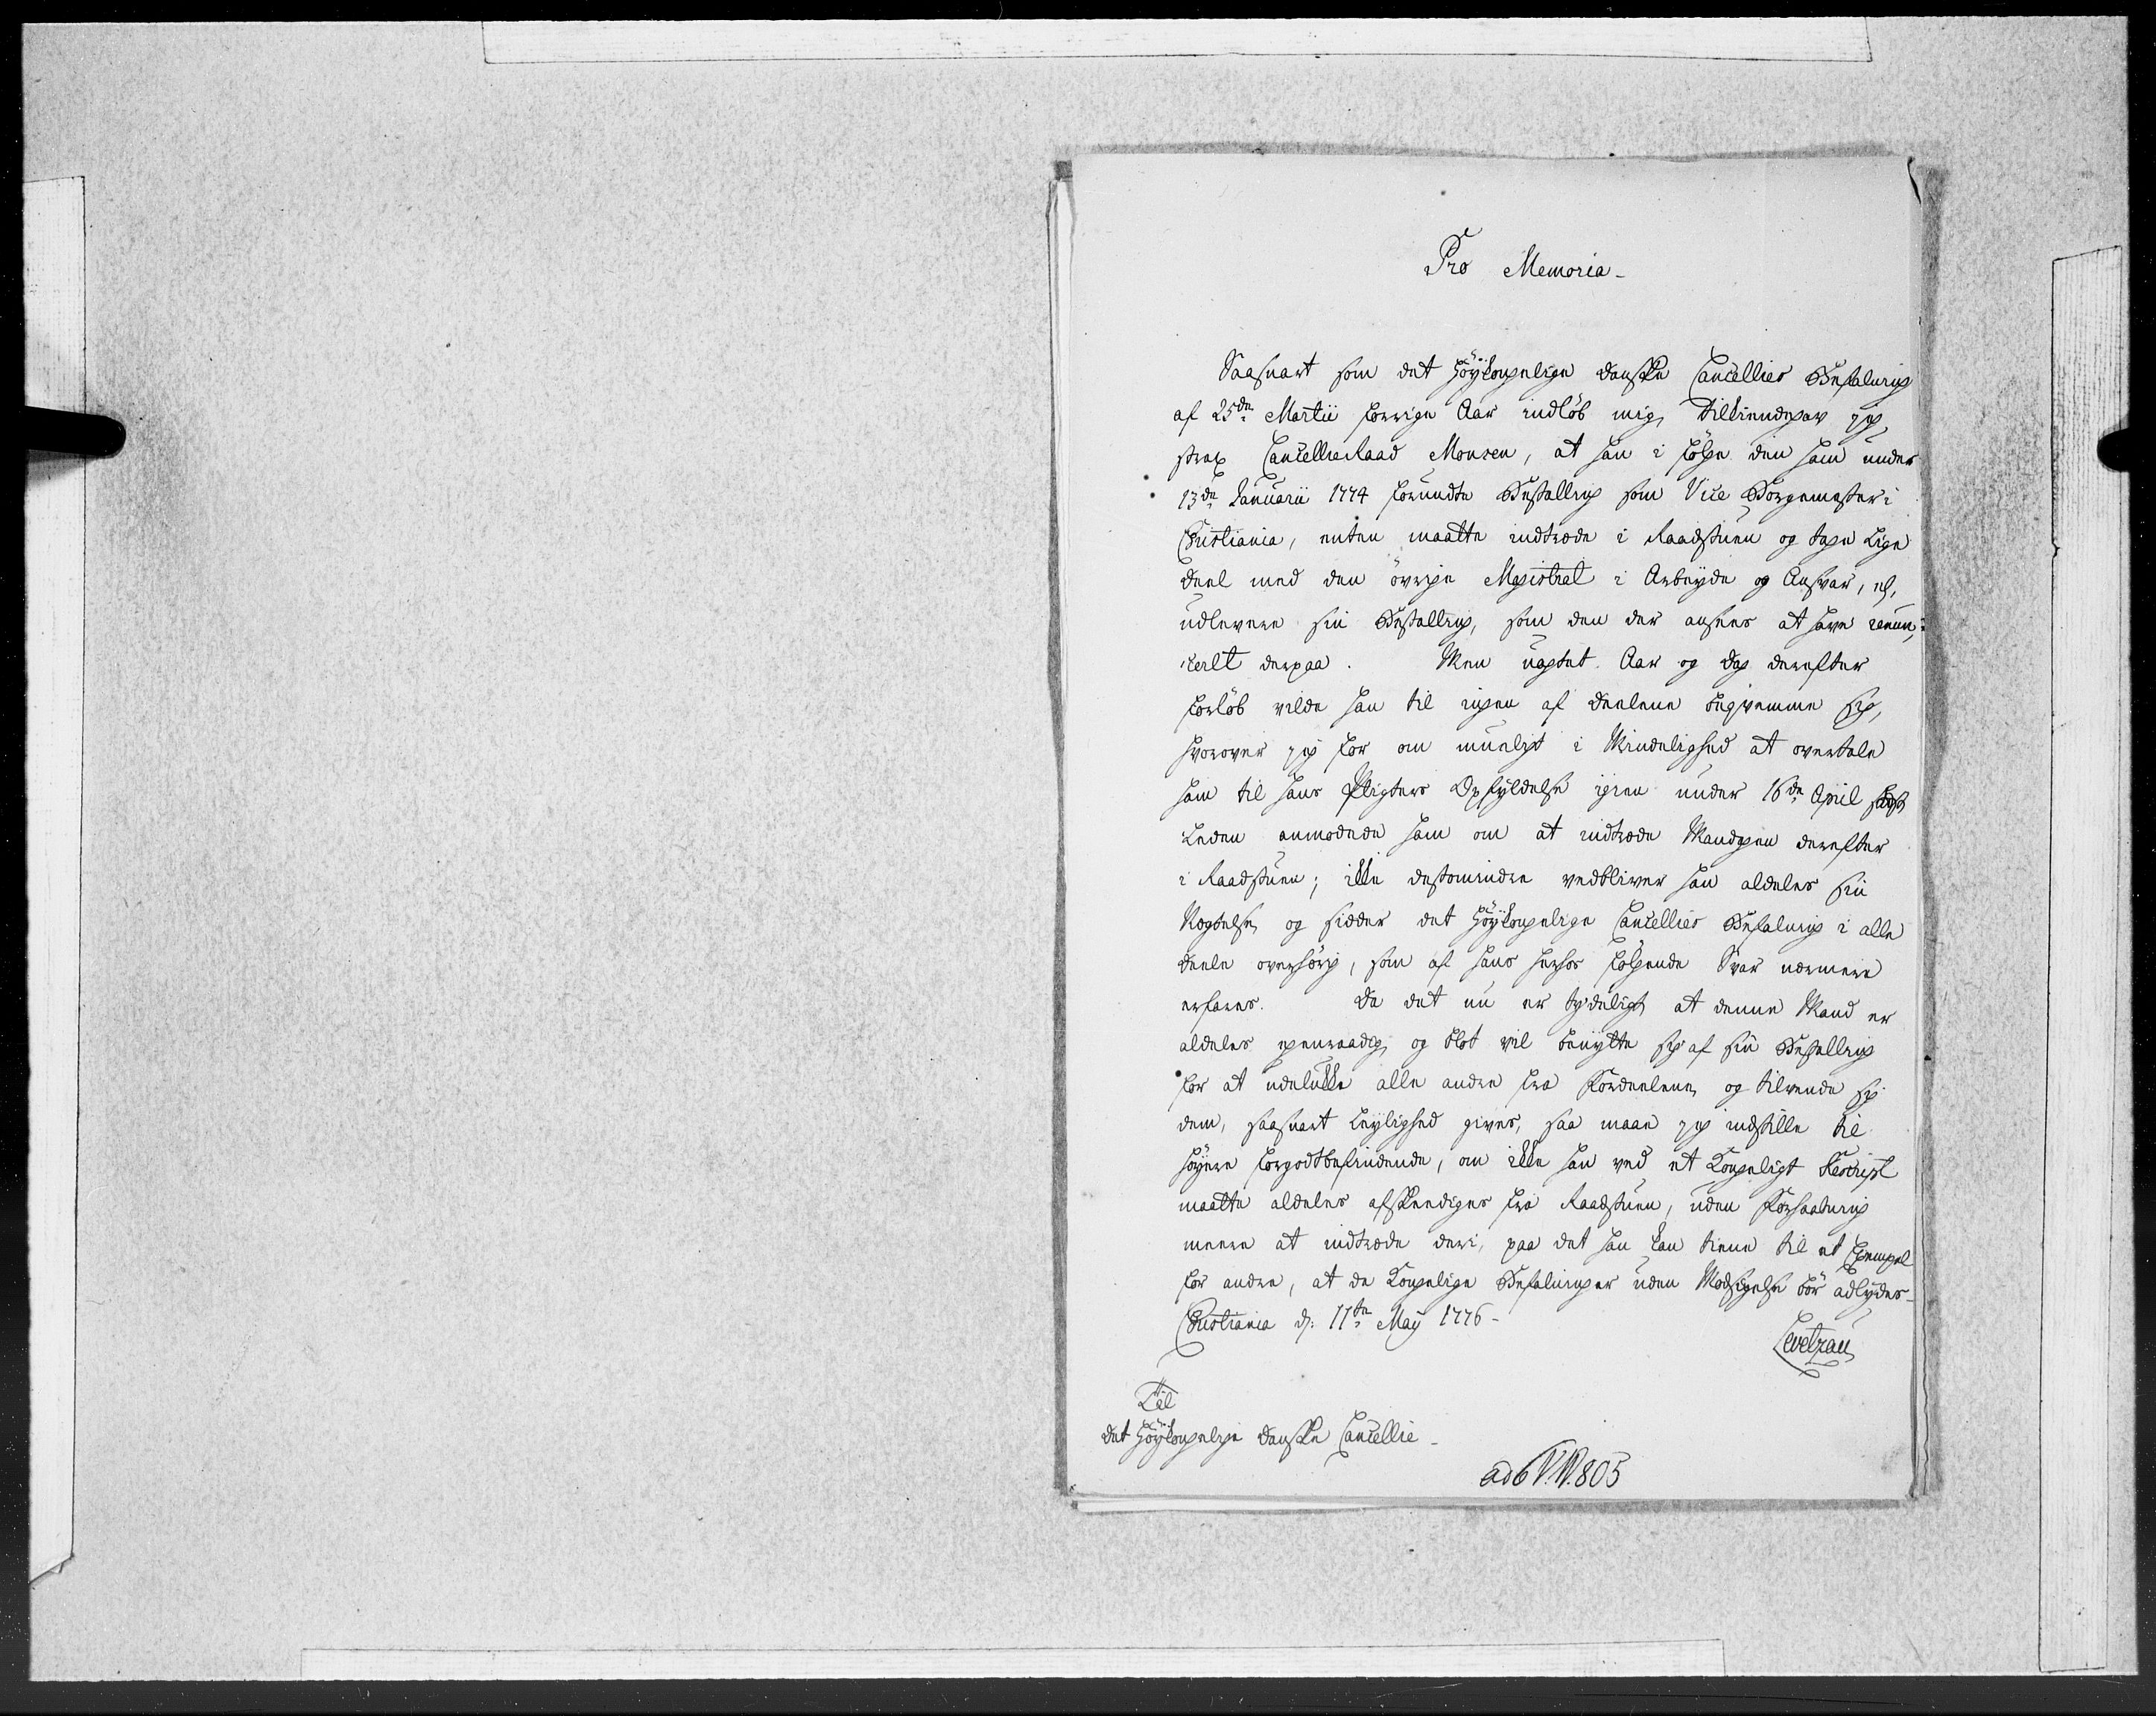 Pro Memoria-
Saasnart som det Höÿkongelige danske Cancellies Befaling
af 25de Martii forrige Aar indløb mig, tilkiendegav jeg
strax CancellieRaad Monsen, at han i følge den ham under
13de Januarii 1774 forundte Bestalling som Vice Borgemester i
Christiania, enten maatte indtræde i Raadstuen og tage Lige
deel med den övrige Magistrat i Arbeyde og Ansvar, ell.
udlevere sin Bestalling, som den der ansees at have renun-
cerlt derpaa. Men uagtet Aar og dag derefter
forløb vilde han til ingen af deelene beqvemme sig,
hvorover jeg for om mueligt i Mindelighed at overtale
ham til hans Pligters Opfÿldelse igien under 16de April sidst
Leden anmodede ham om at indtræde Mandagen derefter
i Raadstuen; ikke destomindre vedbliver han aldeles sin
Nægtelse, og sidder det Höÿkongelige Cancellies Befaling i alle
deele overhörig, som af hans herhos følgende Svar nærmere
erfares. Da det nu er tydeligt, at denne Mand er
aldeles egenraadig, og blot vil benÿtte sig af sin Bestalling
for at udelukke alle andre fra Fordeelene, og tilvende sig
dem, saasnart Leylighed gives, saa maae jeg indstille til
höyere forgodtbefindende, om ikke han ved et Kongeligt Rescript
maatte aldeles afskeediges fra Raadstuen, uden Forhaabning
meere at indtræde deri, paa det han kan tiene til et Exempel
for andre, at de Kongelige Befalinger uden Modsigelse bör adlÿdes-
Christiania d: 11te Maÿ 1776-
Levetzau
Til
det Höÿkongelige danske Cancellie-
ad 6 V.N. 805